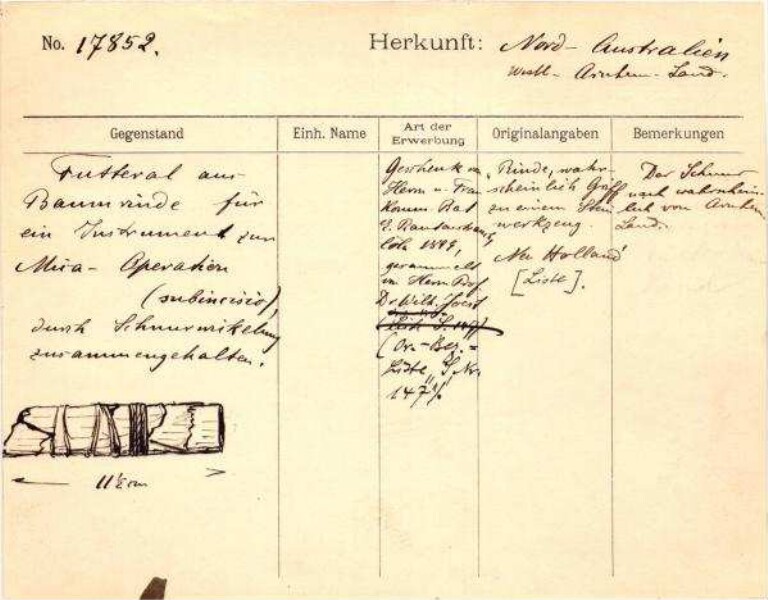 No. 17852.
Herkunft: Nord-Australien
Westl-Arnhem-Land.
Gegenstand
Einh. Name
Art der Erwerbung
Originalangaben
Bemerkungen
Futteral aus
Baumrinde für
ein Instrument zur
Mica-Operation
(subincisio),
durch Schnurwickelung
zusammengehalten.
11½ cm
Geschenk von
Herrn u. Frau
Komm. Rat
E. Rautenstrauch,
Cöln 1899,
gesammelt
von Herrn Prof.
Dr. Wilh. Joest
(Or.-Bez. =
Liste, S. Nr.
147
„Rinde, wahr-
scheinlich Griff
zu einem Stein
werkzeug.
Neu Holland“
[Liste].
Der Schnur
nach wahrschein-
lich von Arnhem
Land.